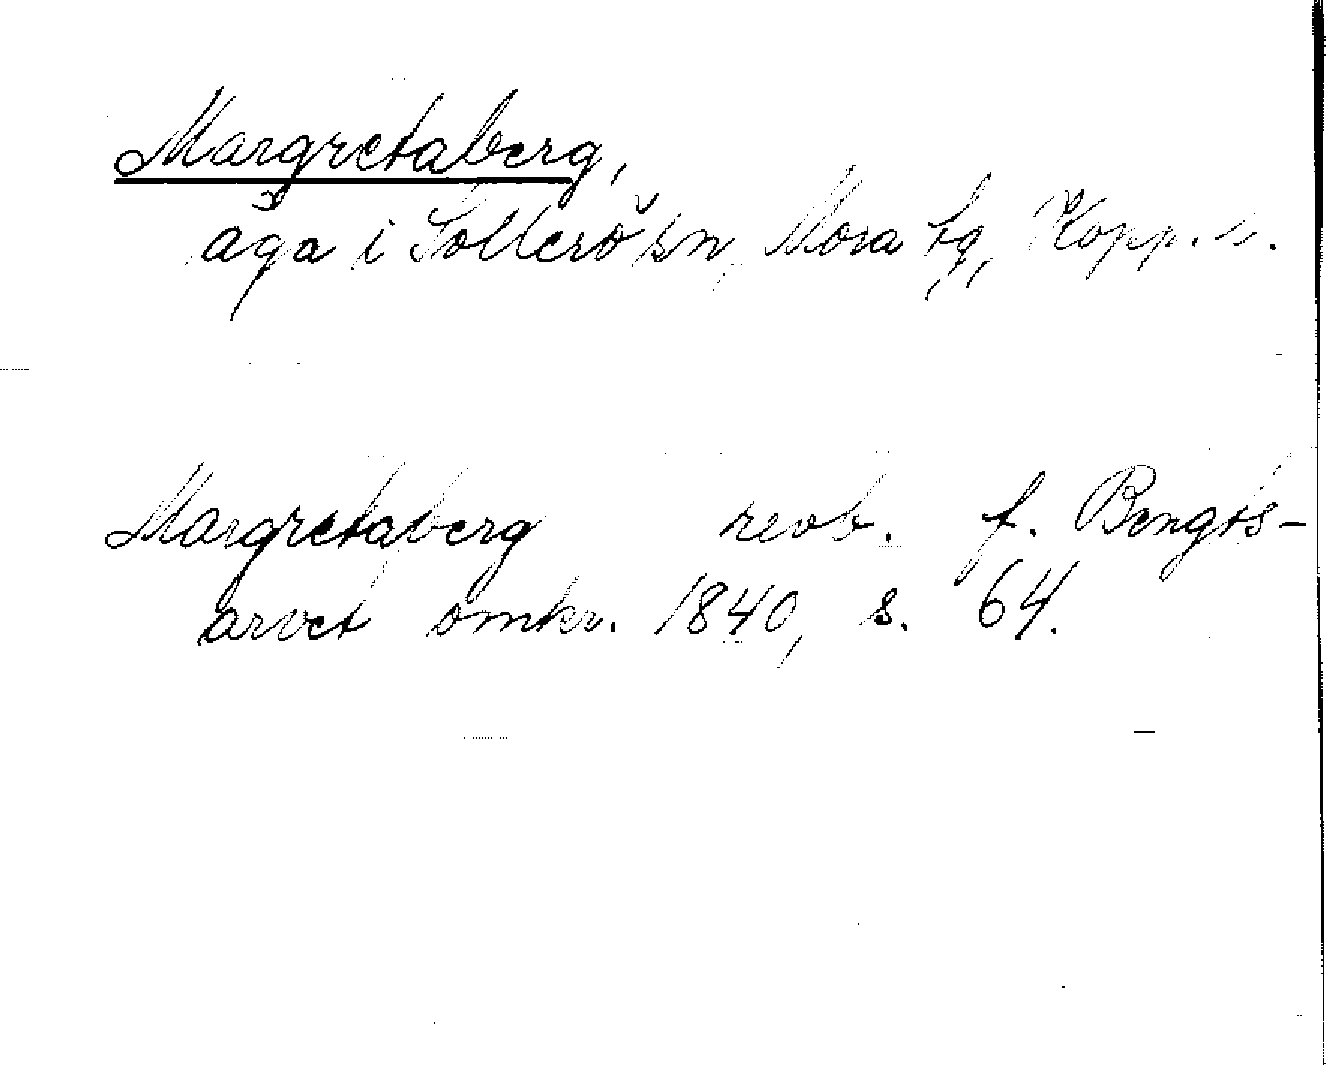 Margretaberg,
äga i Sollerö sn, Mora tg, Kopp. l.
Margretaberg revb. f. Bengts-
arvet omkr. 1840, s. 64.